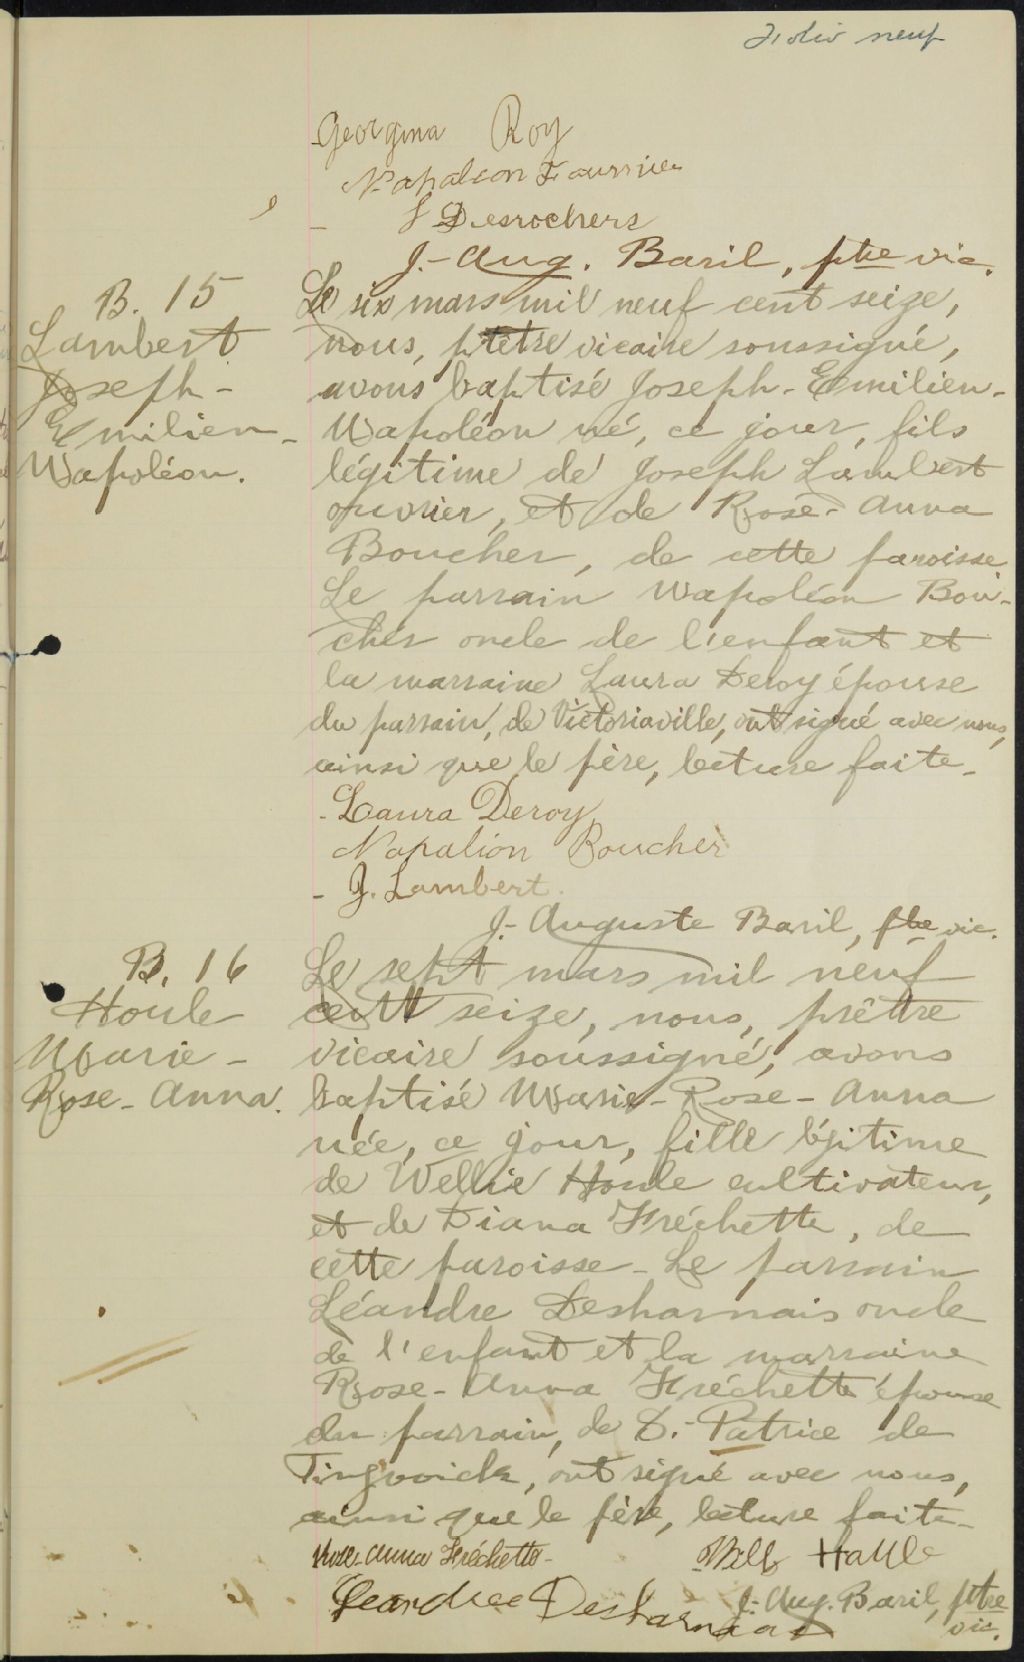 Folio neuf
Georgina Roy
Napoleon Fournier
J Desrochers
J.-Aug. Baril, ptre vic.
B. 15
Lambert
Joseph-
Emilien-
Napoléon.
Le six mars mil neuf cent seize,
nous, prêtre vicaire soussigné,
avons baptisé Joseph-Emilien-
Napoléon né, ce jour, fils
légitime de Joseph Lambert
ouvrier, et de Rose-Anna
Boucher, de cette paroisse.
Le parrain Napoléon Bou-
cher oncle de l'enfant et
la marraine Laura Deroy épouse
du parrain, de Victoriaville, ont signé avec nous,
ainsi que le père, lecture faite.
Laura Deroy
Napalion Boucher
J. Lambert.
J.-Auguste Baril, ptre vic.
B. 16
Houle
Marie-
Rose-Anna.
Le sept mars mil neuf
cent seize, nous, prêtre
vicaire soussigné, avons
baptisé Marie-Rose-Anna
née, ce jour, fille légitime
de Wellie Houle cultivateur,
et de Diana Fréchette, de
cette paroisse. Le parrain
Léandre Desharnais oncle
de l'enfant et la marraine
Rose-Anna Fréchette épouse
du parrain, de S.-Patrice de
Tingwick, ont signé avec nous,
ainsi que le père, lecture faite.
Rose-Anna Fréchette- Houle
Leandree Desharnais J.-Aug. Baril, ptre
vic.